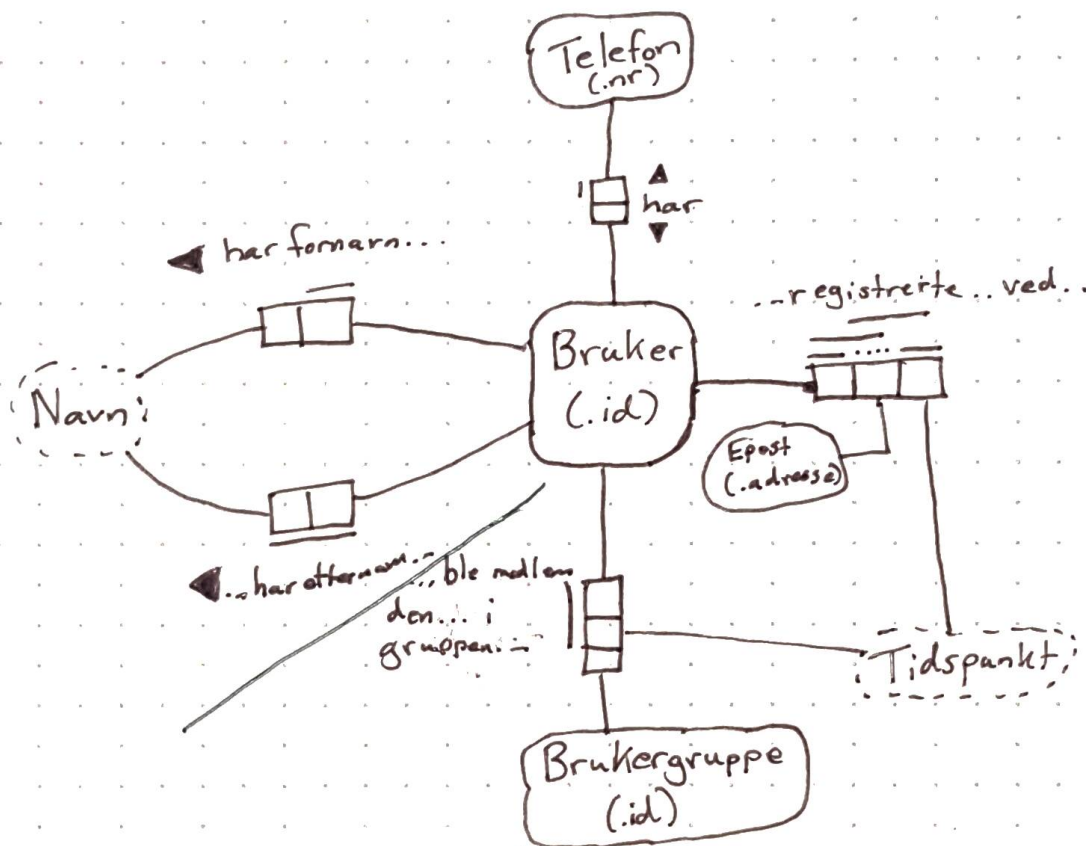 Telefon
(.nr)
har
har fornavn...
...registrerte...ved...
Bruker
(.id)
Navn
Epost
(.adresse)
...har etternavn...
...ble medlem
den.... i
gruppen...
Tidspunkt
Brukergruppe
(.id)